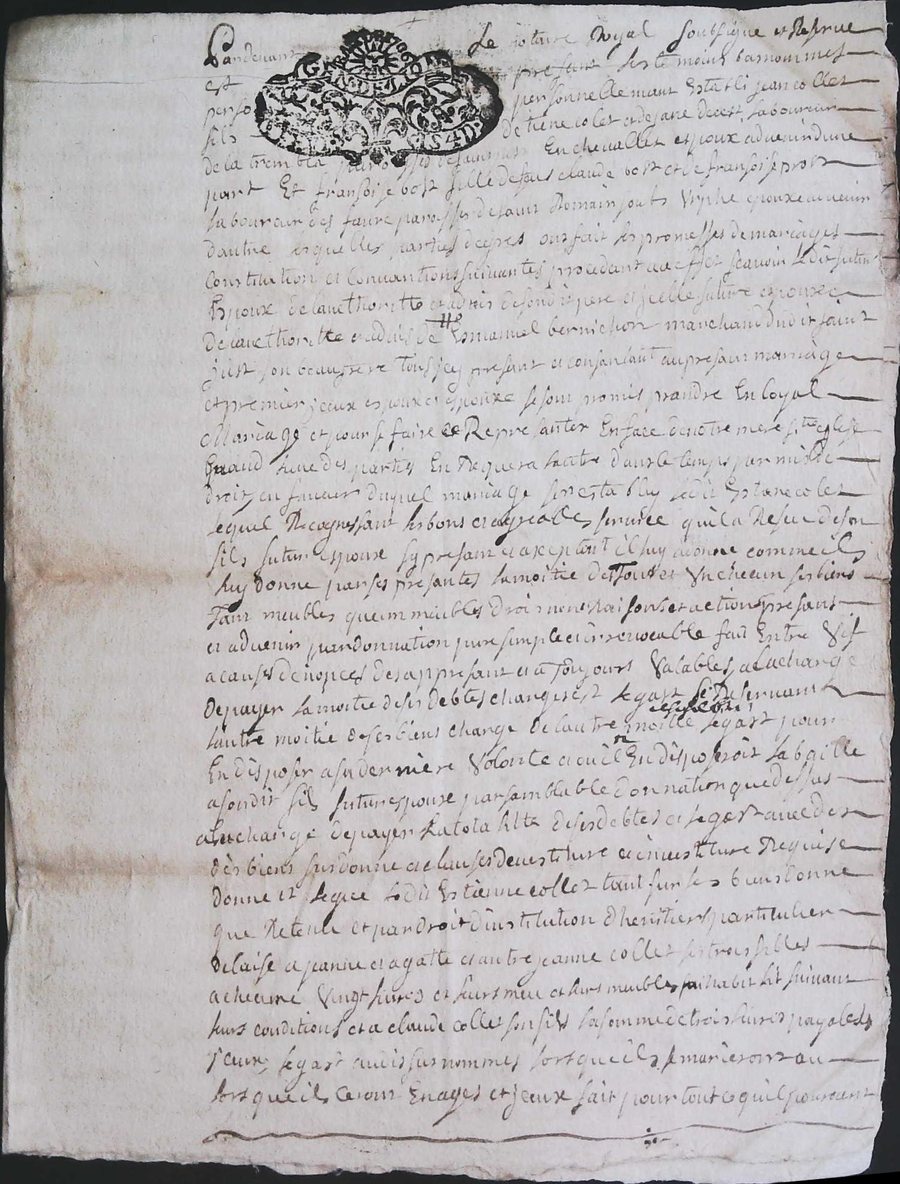 Pardevant Le notaire Royal soubsigne et Reserve
est present les temoins bas nommes
perso personnellemant Establi jean collet
fils de tiene colet et de jane decest laboureur
de la trembla paroisse de saint En chevallet espoux advenir dune
part Et fransoise bost fille de feus claude bost et de fransoise prost
laboureur des faure paroisses de saint Romain soubs Urphe epouxe advenir
dautre lesquelles parties de gres ont fait les promesses de mariages
Constitution et Convantions suivantes procedant avec sset scavoir le dit futur
Espoux de lauthoritte et advis de son dit pere et jcelle future espouxe
de lauthoritte et advis de Esmanuel bernichon marchand dudit saint
just son beaufrere tous jcy presant et consantant au presant mariage
et premier jceux espoux et espouxe se sont promis prandre En loyal
Mariage et pour se faire ce Represanter En face de notre mere ste eglise
quand lune des parties En Requera lautre dans le temps permis de
droit en faveur duquel mariage sest estably ledit Estiene colet
lequel Recognessant les bons et agreables service quil a Reseu de son
fils futur espoux sy presant et axeptant il luy a donne comme il
luy donne par ses presantes la moitie des Tout et Un checun ses biens
Tant meubles que immeubles droit noms Raisons et actions presant
et advenir par donnation pure simple et irrevocable fait Entre Vif
a cause de nopces des a presant et a Toujours Valables a la charge
de payer la moitie de ses debtes charges et legast se Reservant
lautre moitie de ses biens charge de lautre moitie legast pour
En disposer a sa derniere Volonte et ou il n En disposeroit la baille
a sondit fils futur espoux par samblable donnation que dessus
a la charge de payer la totalitte de ses debtes et legast avec des
des biens susdonne et clauses de vestiture et investiture Requise
donne et legue ledit Estienne collet tant sur les biens donne
que Retenu et par droit dinstitution dheritiers particulier
delaise a jeanne et agatte et autre jeanne collet ses trois filles
a checune Vingt livres et leurs meu et leurs meubles habit lit suivant
leurs conditions et a claude collet son fils la somme de trois livres payables
jceux legast aux dissusnommes lorsque ils se marieront au
lorsque ils ceront En ages et jceux fait pour tout ce quil pouroient